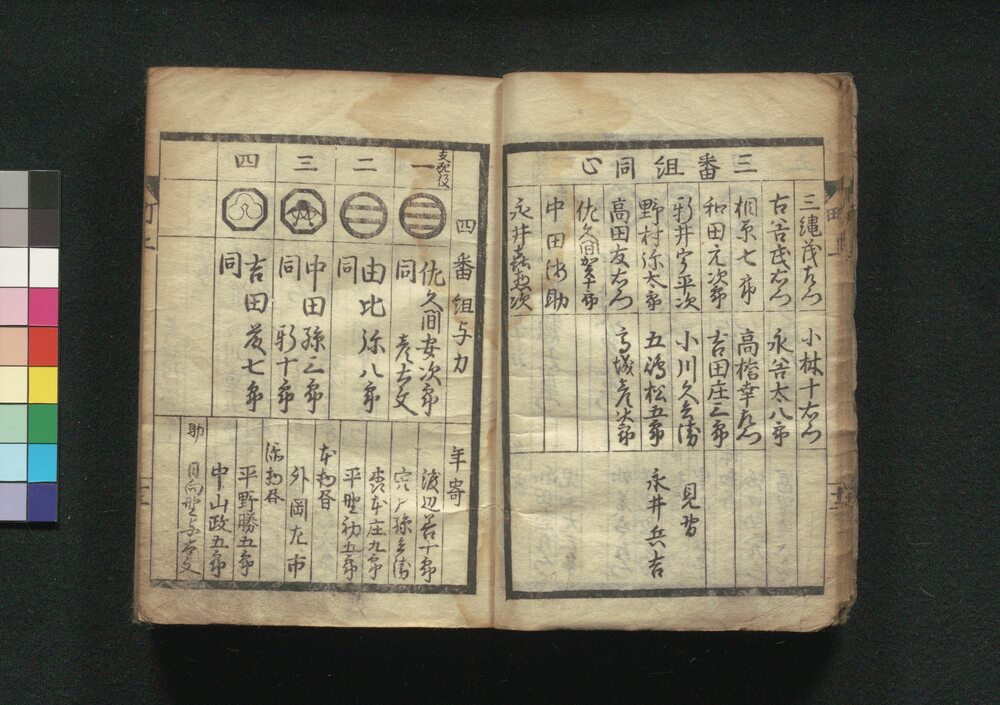 三番組同心
三縄茂右衛門
古谷茂右衛門
桐原七郎
和田元次郎
新井宇平次
野村弥太郎
高田友右衛門
佐久間賀十郎
中田
永井喜惣次
小林十右衛門
永谷太八郎
高橋幸右衛門
吉田庄三郎
小川久兵衛
五嶋松五郎
高城彦次郎
見習
永井兵吉
四番組与力
支配役
一
佐久間安次郎
同 彦太夫
二
由比弥八郎
同
三
中田孫三郎
同 新十郎
四
吉田茂七郎
同
年寄
渡辺善十郎
宍戸孫兵衛
本庄九郎
平野
本物書
外岡左市
添物書
平野勝五郎
中山政五郎
助
日向野与太夫